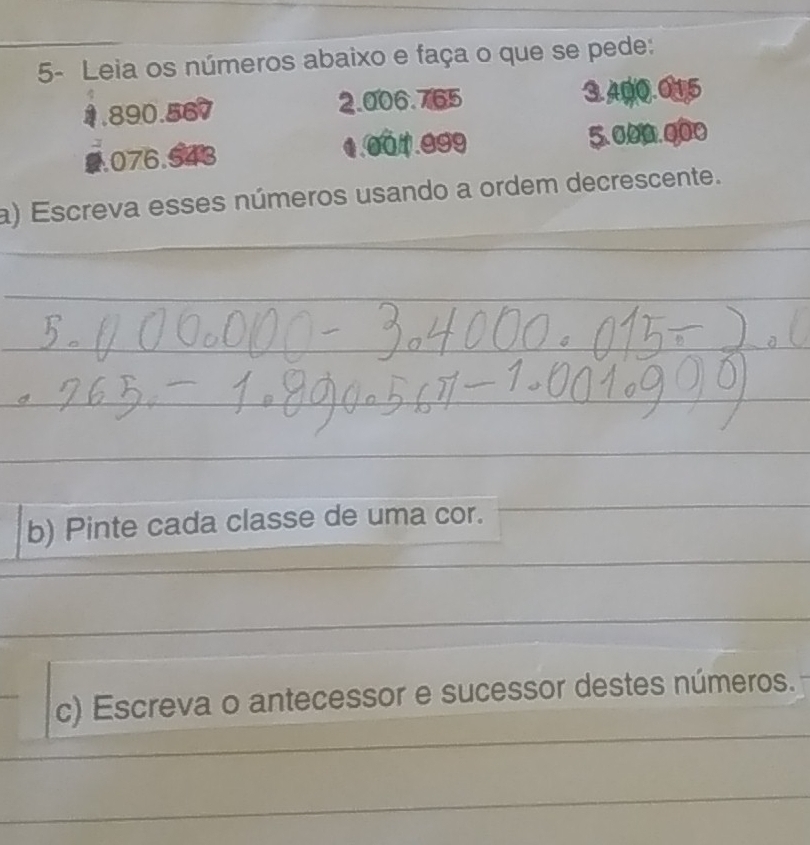 5- Leia os números abaixo e faça o que se pede:
1.890.567 2.006.765 3.400.015
.076.543 1.001.999 5.000.000
a) Escreva esses números usando a ordem decrescente.
5.000.000 - 3.4000.015 - 2.0
.765. - 1.890.567 - 1.001.999
b) Pinte cada classe de uma cor.
c) Escreva o antecessor e sucessor destes números.